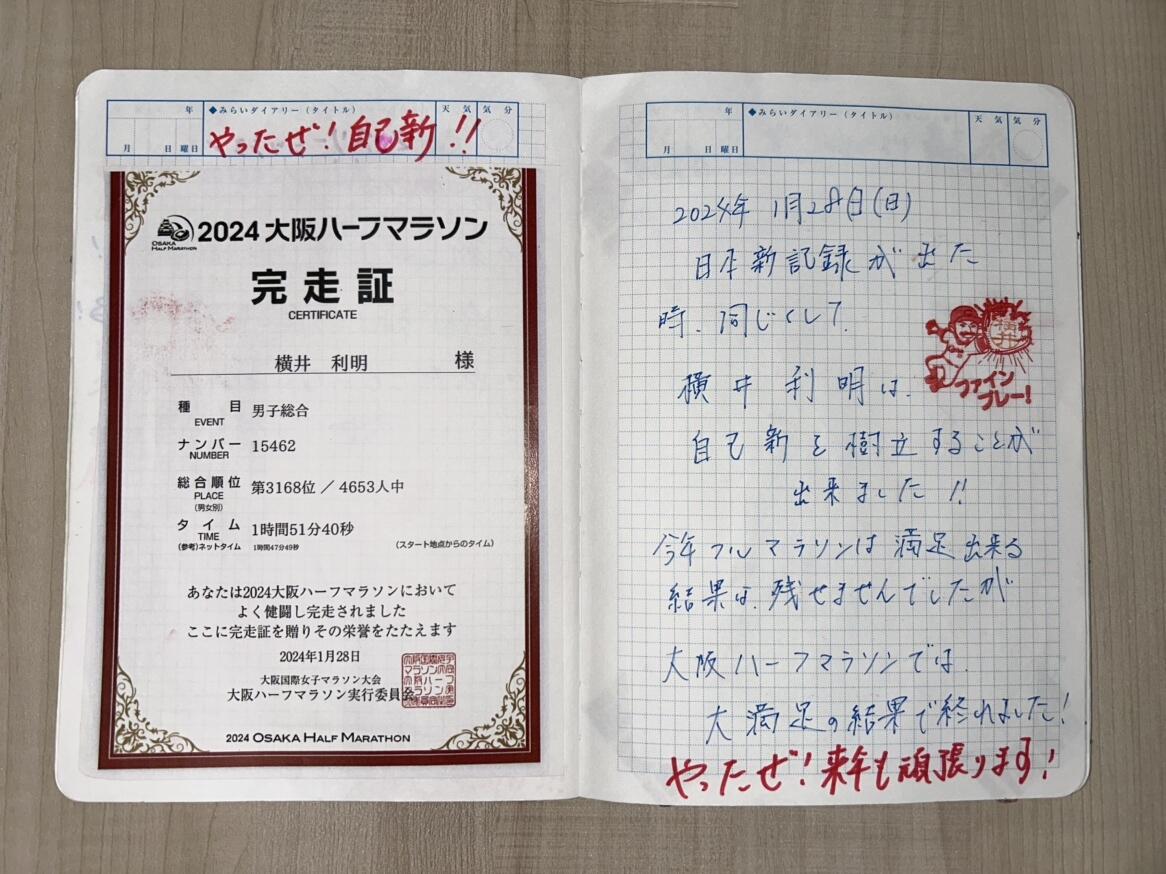 年
◆みらいダイアリー（タイトル）
天気
気分
月 日 曜日
やったぜ！自己新!!
OSAKA
HALF MARATHON
2024 大阪ハーフマラソン
完走証
CERTIFICATE
横井 利明 様
種目 男子総合
EVENT
ナンバー 15462
NUMBER
総合順位 第3168位 ／ 4653人中
PLACE
(男女別)
タイム 1時間51分40秒
TIME
(参考)ネットタイム 1時間47分49秒 (スタート地点からのタイム)
あなたは2024大阪ハーフマラソンにおいて
よく健闘し完走されました
ここに完走証を贈りその栄誉をたたえます
2024年1月28日
大阪国際女子マラソン大会
大阪ハーフマラソン実行委員会
2024 OSAKA HALF MARATHON
年
◆みらいダイアリー（タイトル）
天気
気分
月 日 曜日
2024年 1月28日(日)
日本新記録が出た
時、同じくして、
横井利明は、
自己新を樹立することが
出来ました!!
今年フルマラソンは満足出来る
結果は、残せませんでしたが
大阪ハーフマラソンでは、
大満足の結果で終れました！
やったぜ！来年も頑張ります！
横井
ファイン
プレー！